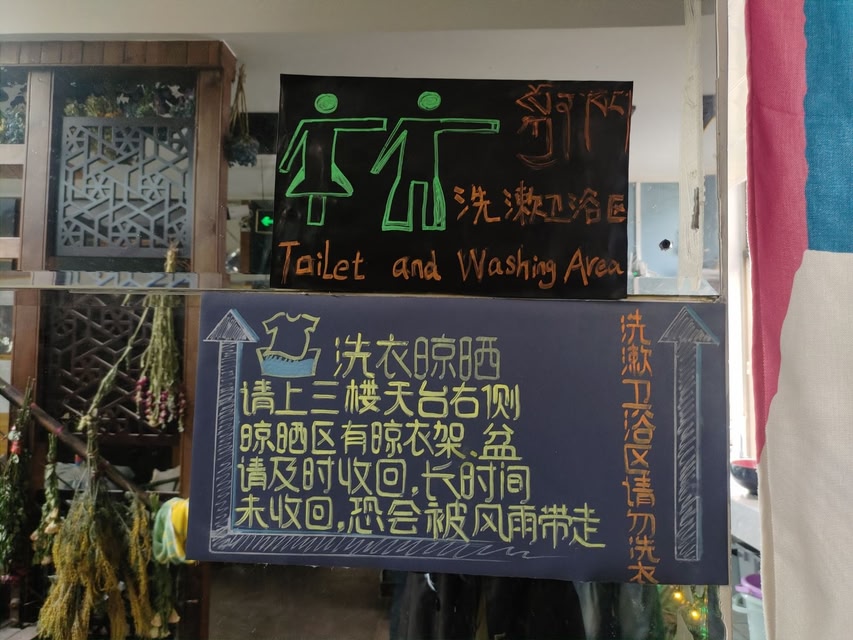 洗漱卫浴区
Toilet and Washing Area
洗衣晾晒
请上三楼天台右侧
晾晒区有晾衣架、盆
请及时收回,长时间
未收回,恐会被风雨带走
洗漱卫浴区请勿洗衣